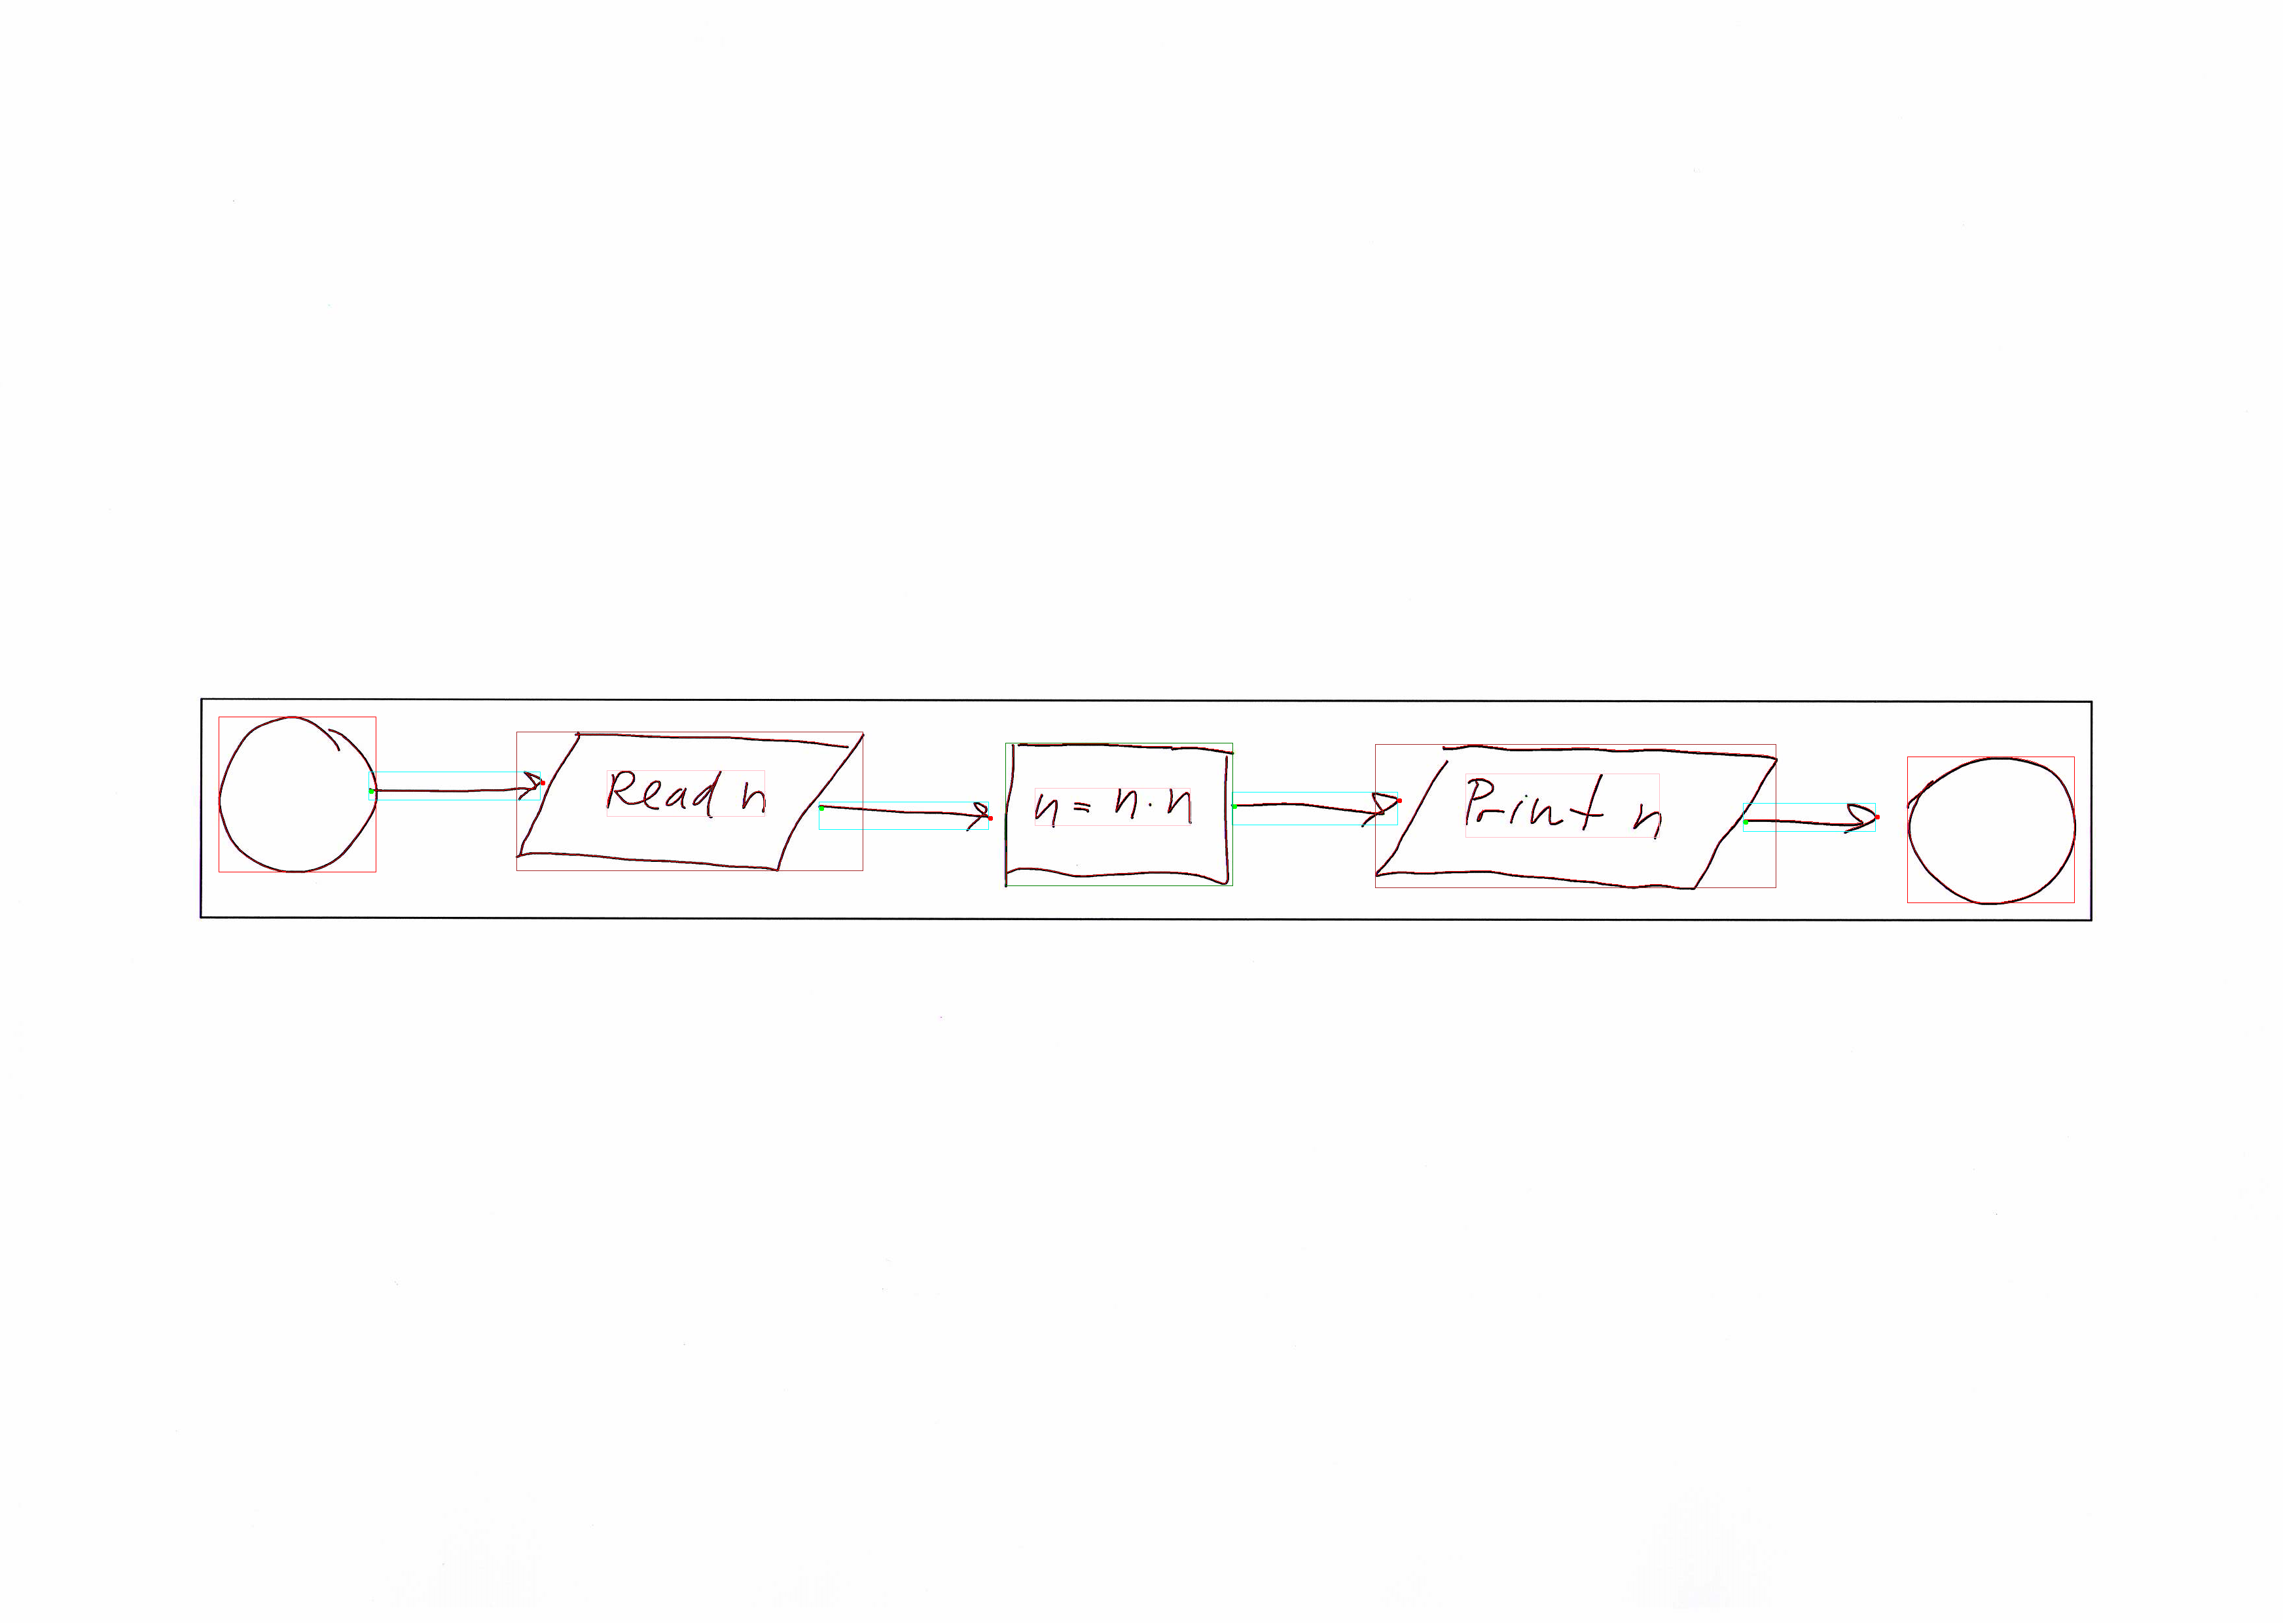 Read n
n = n · n
Print n